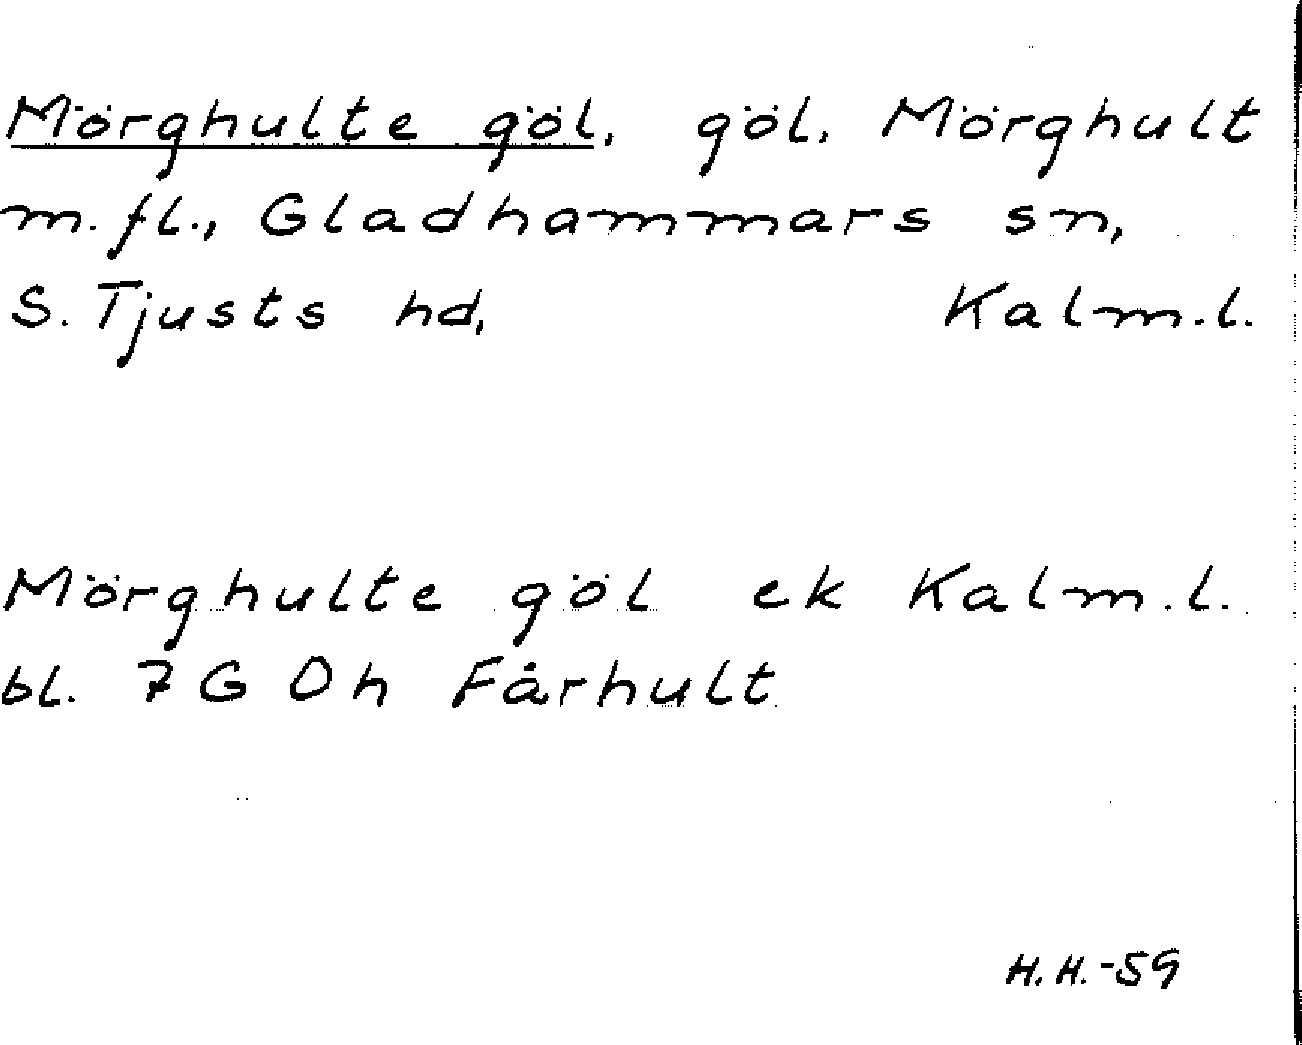 Mörghulte göl, göl. Mörghult
m.fl., Gladhammars sn,
S. Tjusts hd, Kalm.l.
Mörghulte göl ek Kalm.l.
bl. 7G 0h Fårhult
H.H.-59